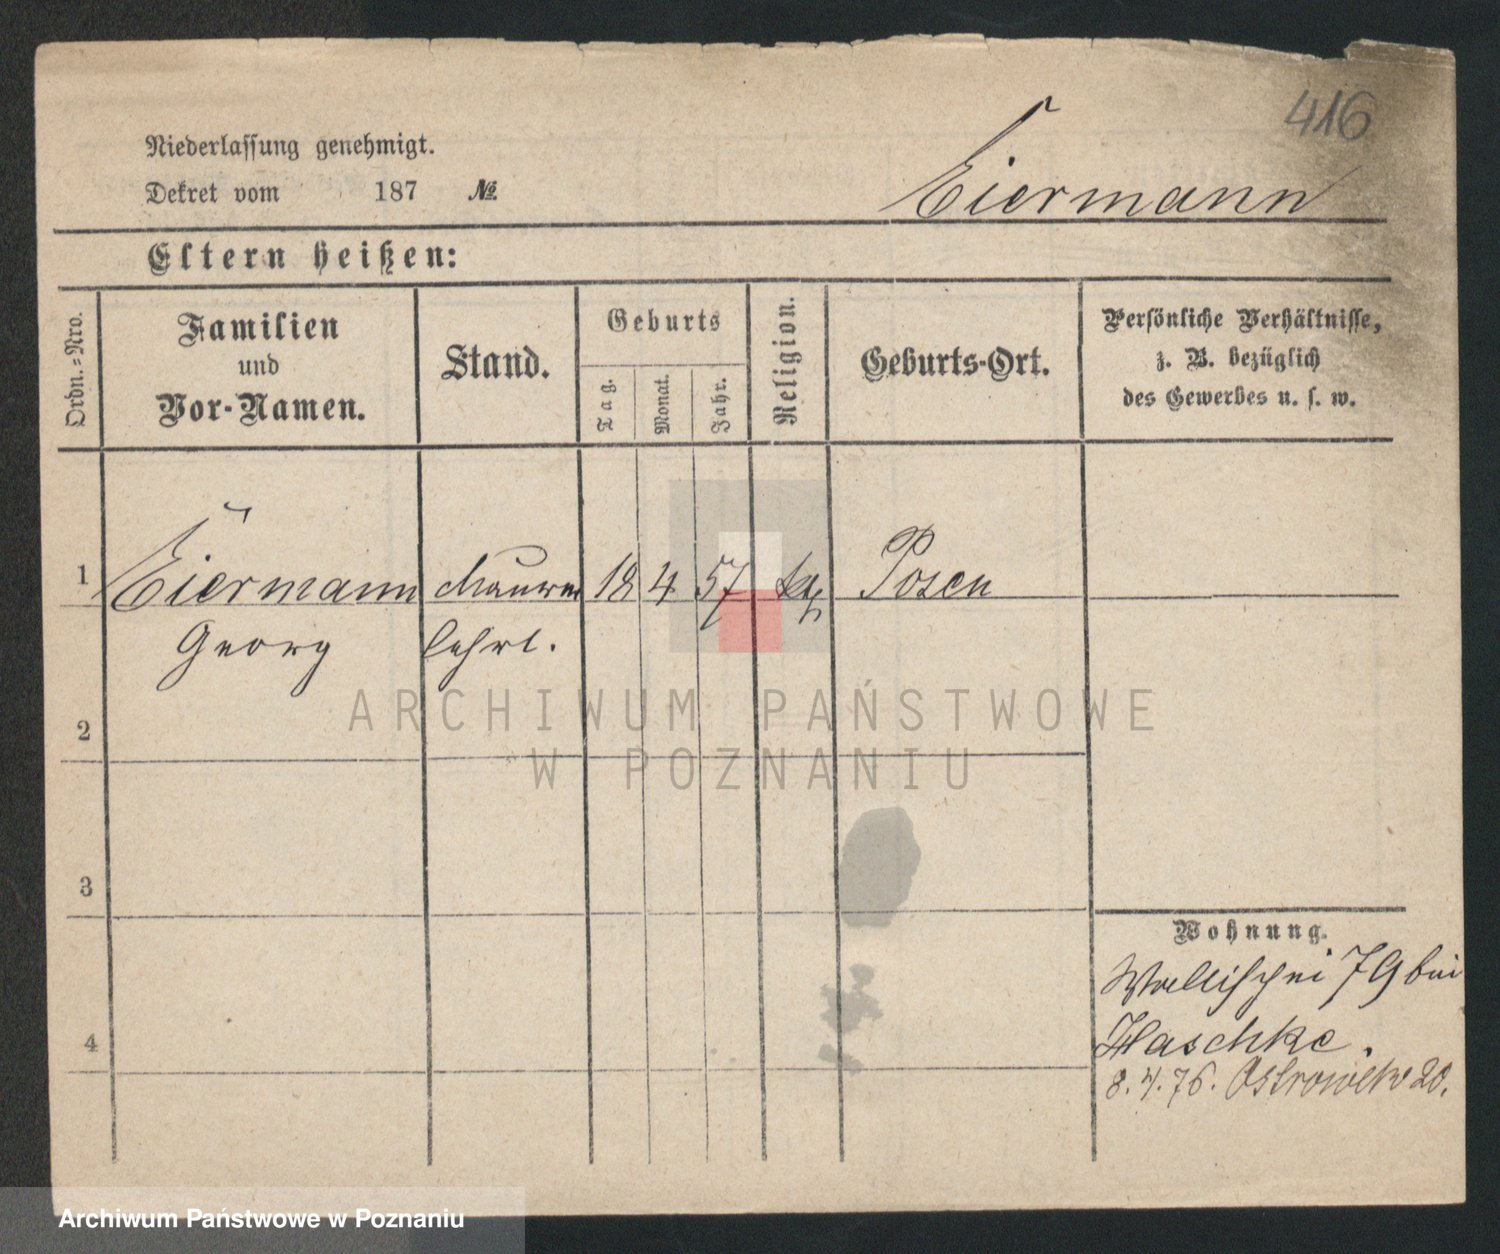 416
Niederlassung genehmigt.
Dekret vom 187 №
Eiermann
Eltern heißen:
Ordn.=Nro.
Familien
und
Vor-Namen.
Stand.
Geburts
Tag.
Monat.
Jahr.
Religion.
Geburts-Ort.
Persönliche Verhältnisse,
z. B. bezüglich
des Gewerbes u. s. w.
1 Eiermann Maurer 18 4 57 kth Posen
Georg lehrl.
2
3
4
Wohnung.
Wallischei 79 bei
Haschke.
8.4.76. Ostrowek 20.
ARCHIWUM PAŃSTWOWE
W POZNANIU
Archiwum Państwowe w Poznaniu